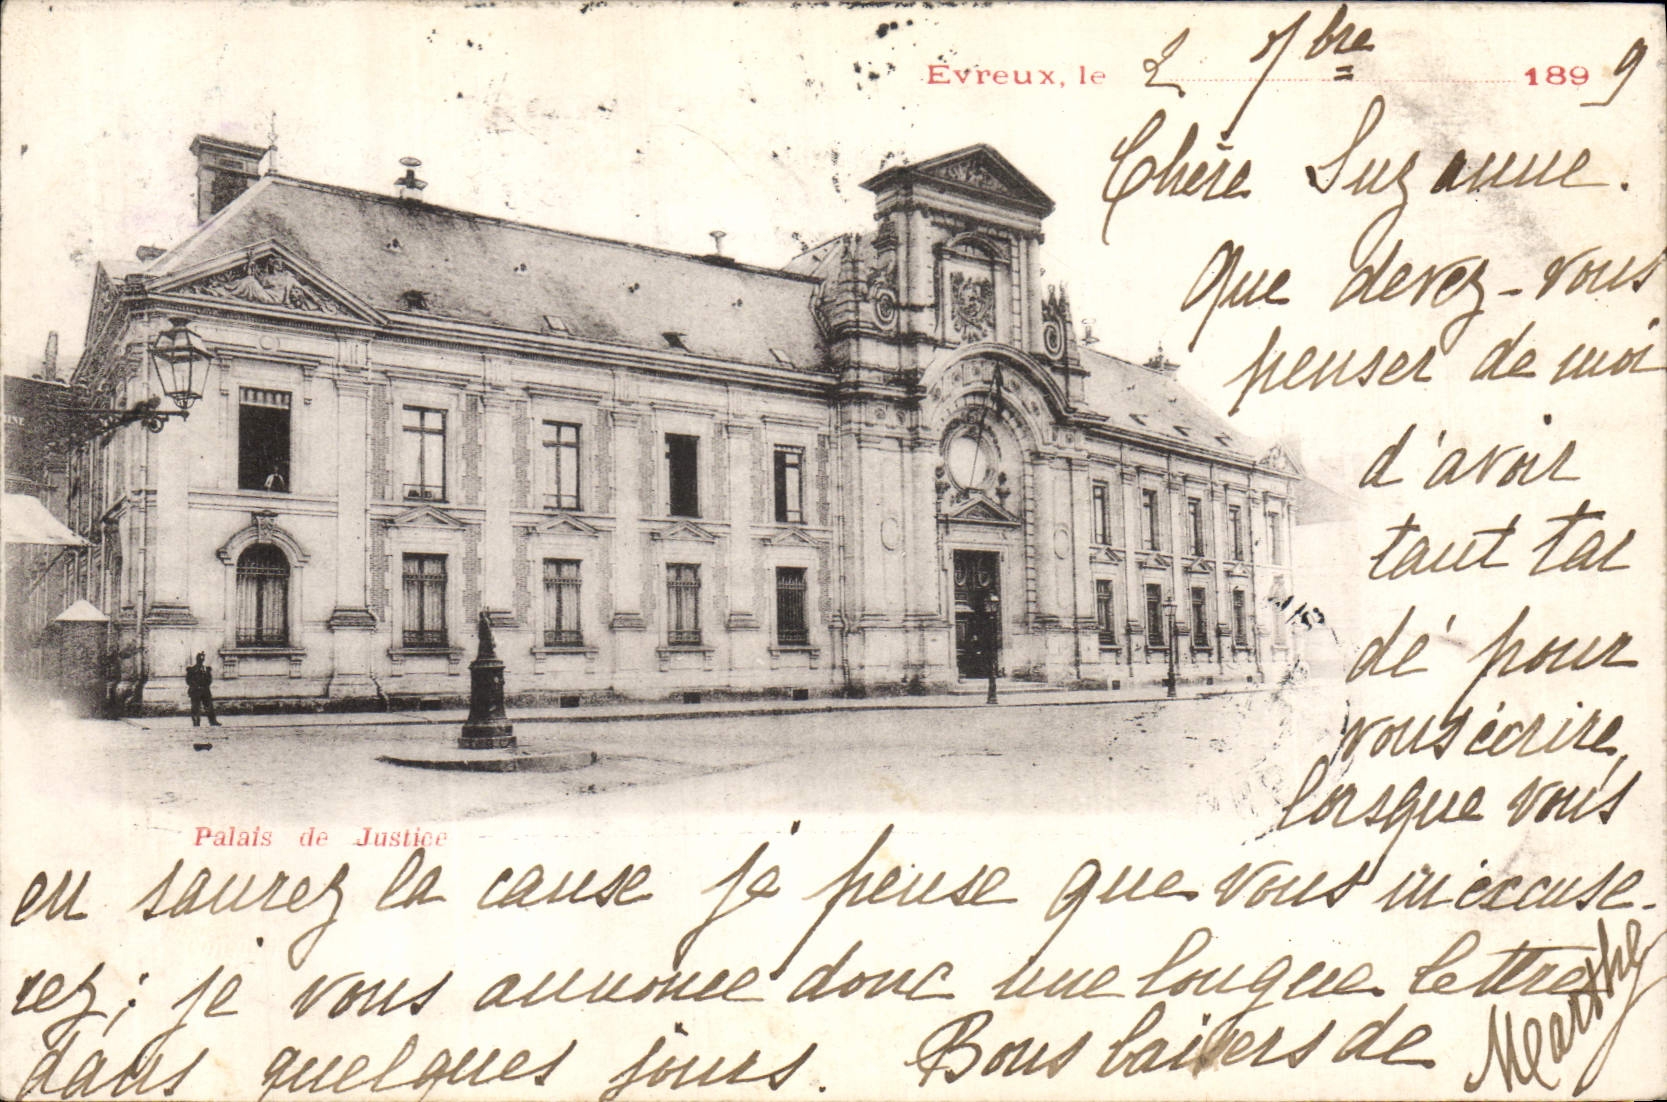 Evreux, le 2 7bre 1899
Chère Suzanne.
Que devez-vous
penser de moi
d'avoir
tant tar
dé pour
vous écrire,
lorsque vous
Palais de Justice
en saurez la cause je pense que vous m'excuse-
rez; je vous annonce donc une longue lettre
dans quelques jours. Bons baisers de Marthe